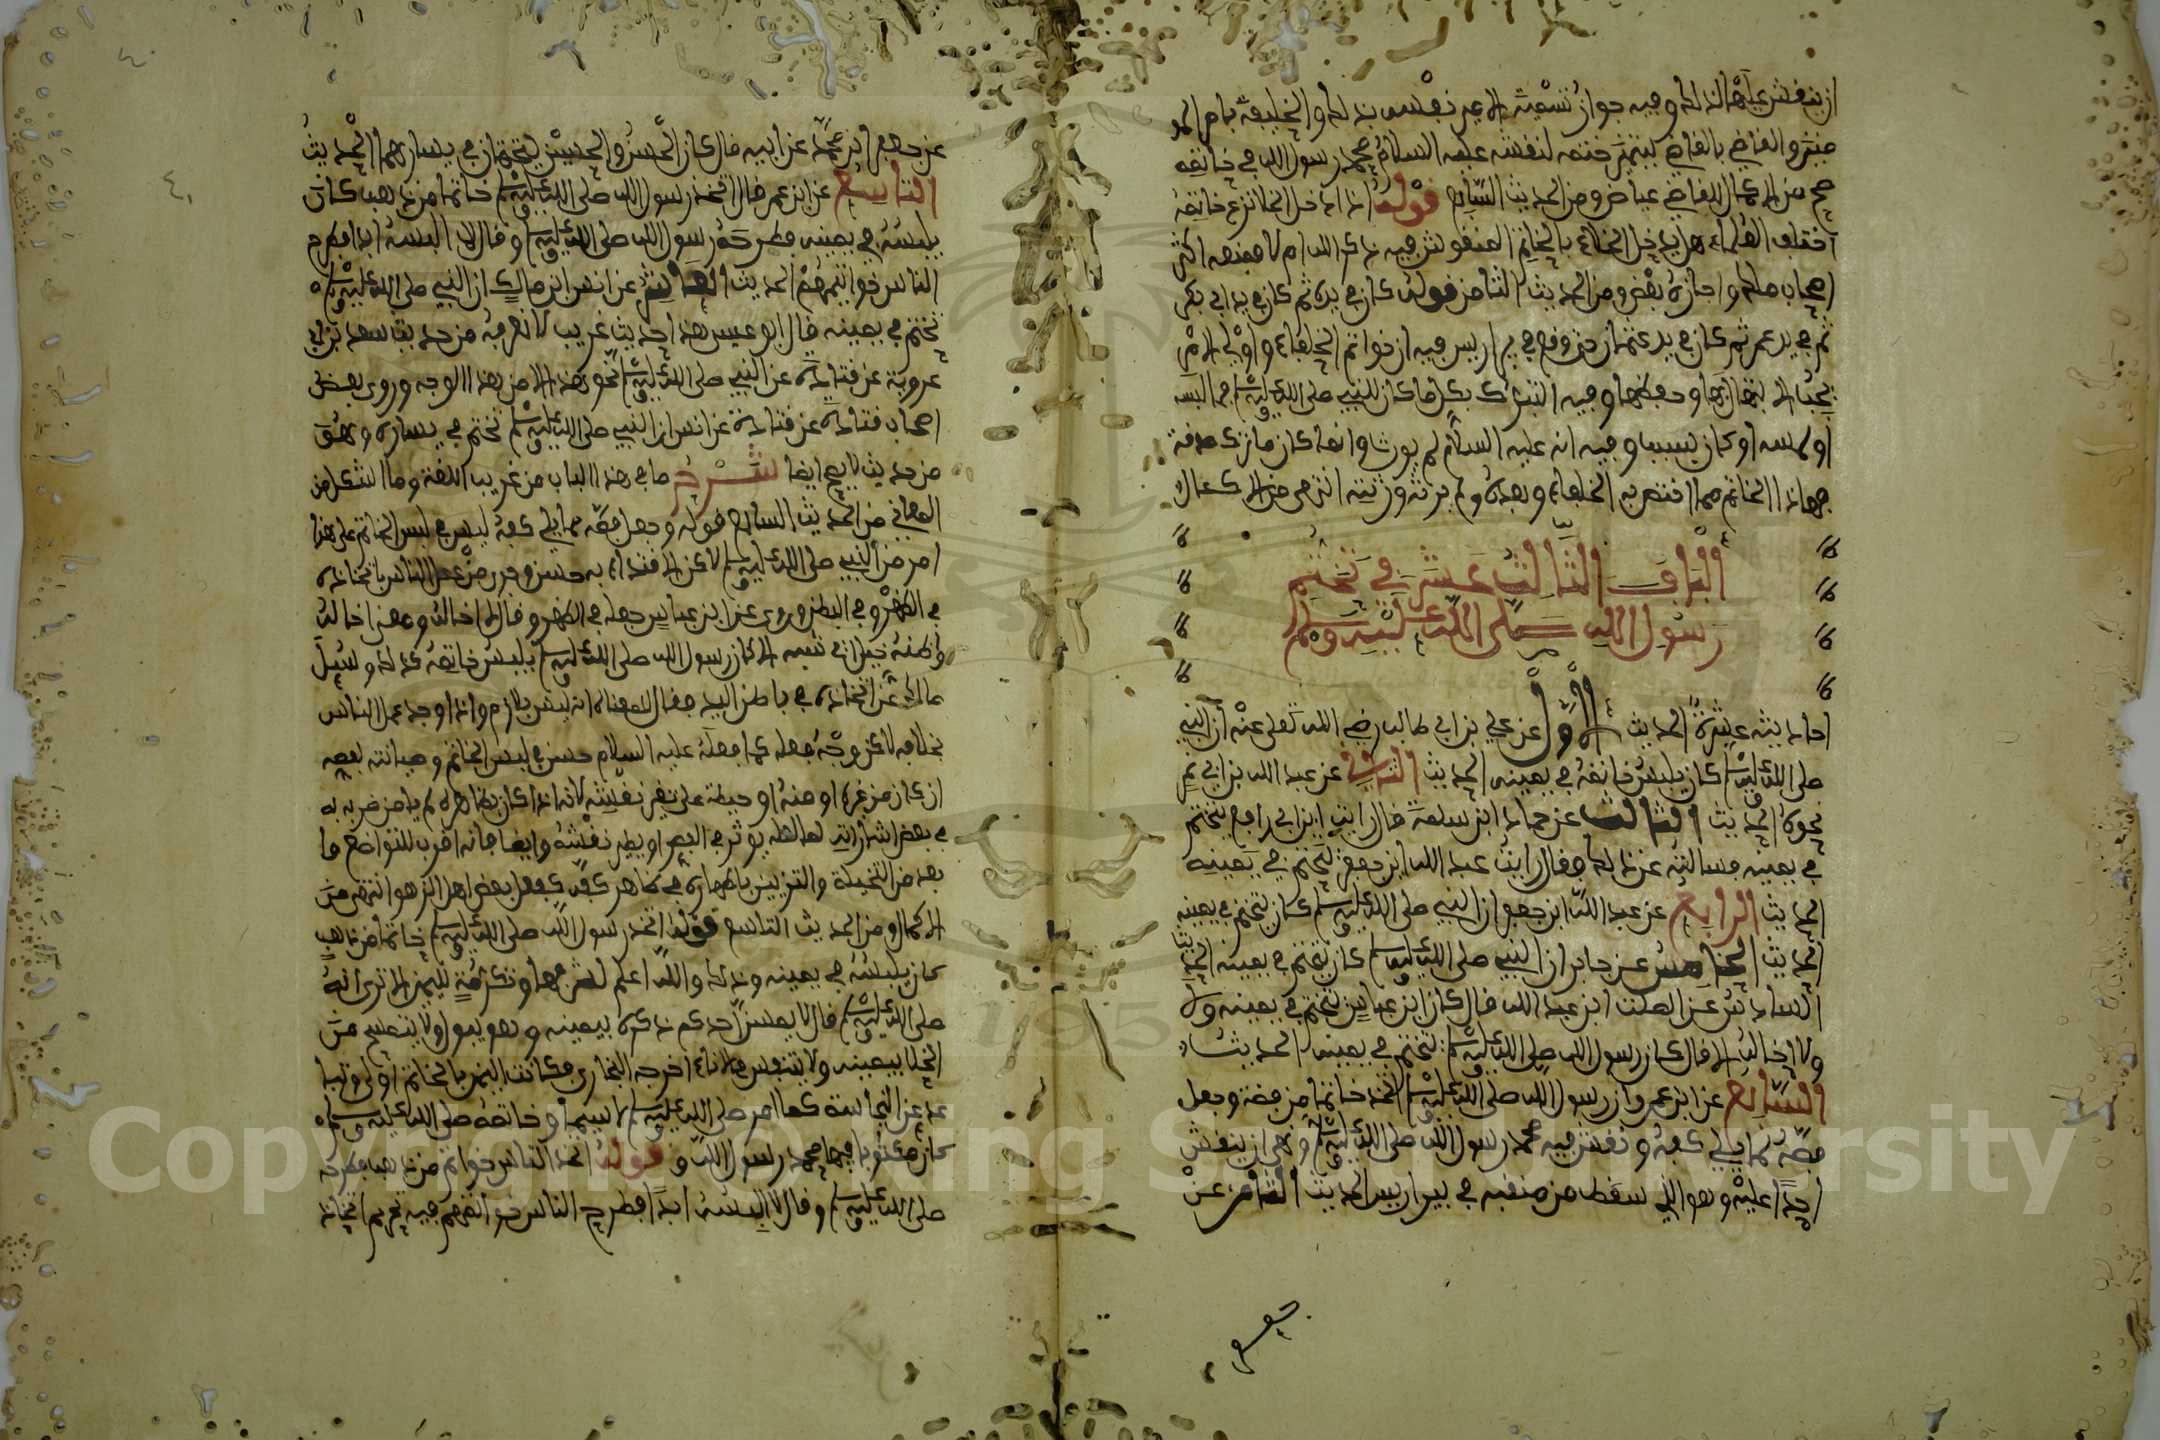 ان ينقش عليها لذلك وفيه جواز تسمية الامير نفسه بذلك والخليفة بامير المو
منين والقاضي بالقاضي ليتميز ختمه لنقشه عليه السلام محمد رسول الله في خاتمه
صح من الاكمال للقاضي عياض ومن الحديث السابع قوله اذا دخل الخلا نزع خاتمه
اختلف العلماء هل يدخل الخلاء بالخاتم المنقوش فيه ذكر الله ام لا فمنعه اكثر
اصحاب مالك واجازه بعض ومن الحديث الثامن قوله كان في يده ثم كان في يد ابي بكر
ثم في يد عمر ثم كان في يد عثمان حتى وقع في بير اريس فيه ان خواتم الخلفاء واولي الامر
يجب الا بها وحفظها وفيه التبرك بكل ما كان للنبي صلى الله عليه وسلم مما لبسه
او لمسه او كان بسببه وفيه انه عليه السلام لم يورث وانما كان ما ترك صدقة
فهذا الخاتم مما اختص به الخلفاء وبعده ولم يرثه ورثته انتهى من الاكمال
الباب الثالث عشر في تختم
رسول الله صلى الله عليه وسلم
احاديثه عشرة الحديث الاول عن علي بن ابي طالب رضي الله تعلى عنه ان النبي
صلى الله عليه وسلم كان يلبس خاتمه في يمينه الحديث الثاني عن عبد الله بن ابي نمر
نحوه الحديث الثالث عن حماد ابن سلمة قال رايت ابن ابي رافع يتختم
في يمينه فسالته عن ذلك فقال رايت عبد الله ابن جعفر يتختم في يمينه
الحديث الرابع عن عبد الله ابن جعفر ان النبي صلى الله عليه وسلم كان يتختم في يمينه
الحديث الخامس عن جابر ان النبي صلى الله عليه وسلم كان يتختم في يمينه الحديث
السادس عن الصلت ابن عبد الله قال كان ابن عباس يتختم في يمينه ولا
ولا اخاله الا قال كان رسول الله صلى الله عليه وسلم يتختم في يمينه الحديث
السابع عن ابن عمر ان رسول الله صلى الله عليه وسلم اتخذ خاتما من فضة وجعل
فصه مما يلي كفه ونقش فيه محمد رسول الله صلى الله عليه وسلم ونهى ان ينقش
احد عليه وهو الذي سقط من معيقيب في بير اريس الحديث الثامن عن
جعفر
عن جعفر ابن محمد عن ابيه قال كان الحسن والحسين يتختمان في يسارهما الحديث
التاسع عن ابن عمر قال اتخذ رسول الله صلى الله عليه وسلم خاتما من ذهب كان
يلبسه في يمينه فطرحه رسول الله صلى الله عليه وسلم وقال لا البسه ابدا فطرح
الناس خواتيمهم الحديث العاشر عن انس ابن مالك ان النبي صلى الله عليه وسلم
تختم في يمينه قال ابو عيسى هذا حديث غريب لا نعرفه من حديث سعد بن ابي
عروبة عن قتادة عن النبي صلى الله عليه وسلم نحو هذا الا من هذا الوجه وروى بعض
اصحاب قتادة عن قتادة عن انس ان النبي صلى الله عليه وسلم تختم في يساره وهو
من حديث لا يصح ايضا شرح ما في هذا الباب من غريب اللغة وما اشكل من
المعاني من الحديث السابع قوله وجعل فصه مما يلي كفه ليس في لبس الخاتم على هذا
امر من النبي صلى الله عليه وسلم لاكن الاقتداء به حسن وجرى من عمل الناس باتخاذه
في الظهر وفي البطن وروى عن ابن عباس جعله في الظهر وقال لا اخاله وعن اخاله
واظنه خيل اني شبه الا كان رسول الله صلى الله عليه وسلم يلبس خاتمه كذلك وسيل
مالك عن اتخاذه في باطن اليد فقال لا معناه انه ليس بلازم واذا وجد عمل الناس
بخلافه لاكن وجه جعله كما فعله عليه السلام حسن في لبس الخاتم وصيانته لفصه
ان كان من غيره او منه او حيطة على تغير نقشه لانه اذا كان بظاهره لم يامن ضربه به
في بعض اشارته لعا لعله يوثر في الفص او يطير نقشه وايضا فانه اقرب للتواضع وا
بعد من التخيلة والتزين باظهاره في ظاهر كفه كفعل بعض اهل الزهو انتهى من
الاكمال ومن الحديث التاسع قوله اتخذ رسول الله صلى الله عليه وسلم خاتما من ذهب
كان يلبسه في يمينه وذلك والله اعلم لشرفها وتكرمة لليمين الا ترى انه
صلى الله عليه وسلم قال لا يمسن احدكم ذكره بيمينه وهو يبول ولا يتمسح من
الخلا بيمينه ولا يتنفس في الاناء اخرجه البخاري فكانت اليمين بالخاتم اولى وتبا
عد عن النجاسة كما امر صلى الله عليه وسلم لا سيما وخاتمه صلى الله عليه وسلم
كان مكتوبا فيها محمد رسول الله و قوله اتخذ الناس خواتم من ذهب فطرحه
صلى الله عليه وسلم وقال لا البسه ابدا فطرح الناس خواتمهم فيه تحريم اتخاذ